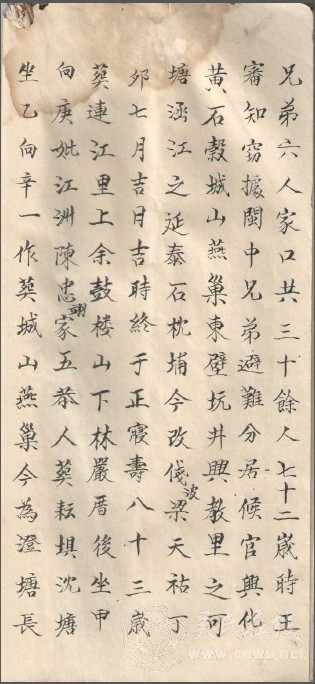 兄弟六人家口共三十餘人七十二歲時王
審知竊據閩中兄弟避難分居候官興化
黃石穀城山燕巢東壁坑井興教里之可
塘涵江之延泰石枕埔今改俴波梁天祜丁
夘七月吉日吉時終于正寢壽八十三歲
葬連江里上余鼓楼山下林嚴厝後坐甲
向庚妣江洲陳忠翊家五恭人葬耘埧沈塘
坐乙向辛一作葬城山燕巢今為澄塘長
www.cnwu.net